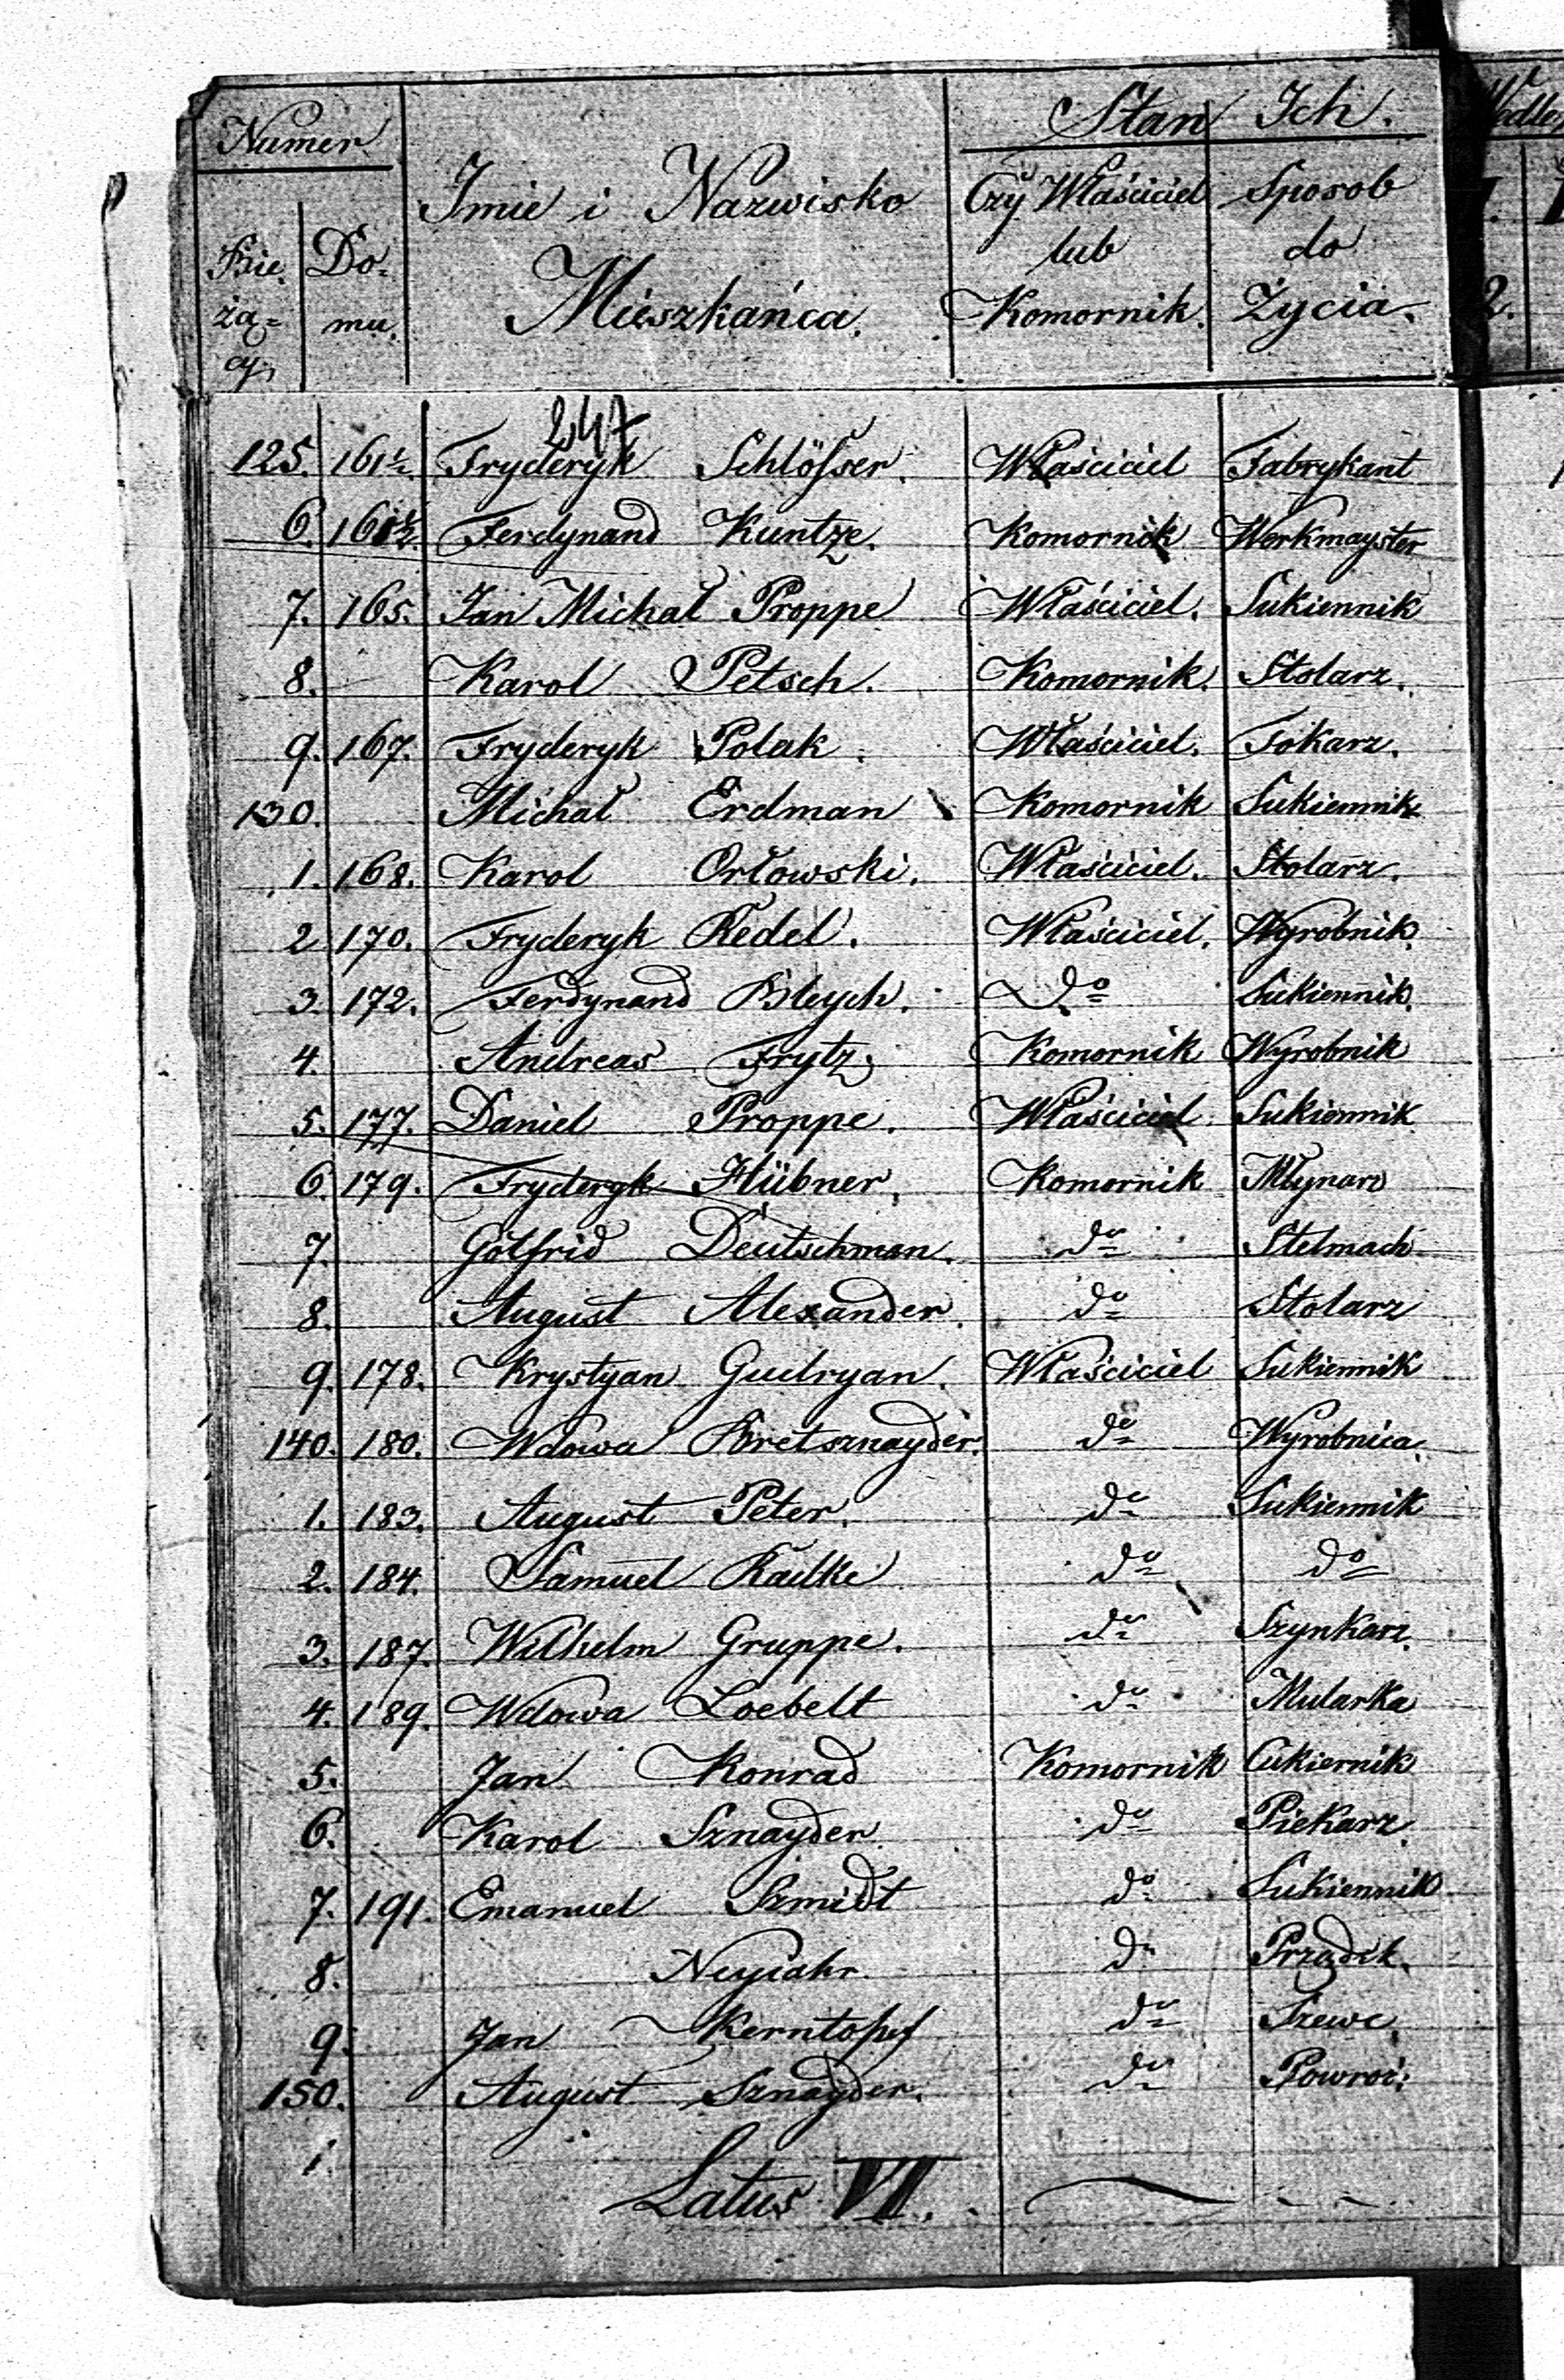 Numer Stan Ich.
Bie- Do- Imie i Nazwisko Czy Właściciel Sposob
żą= mu. Mieszkańca. lub do
cy. Komornik. Życia.
247
125. 161½. Fryderyk Schlösser. Właściciel Fabrykant
6. 161½. Ferdynand Kuntze. Komornik Werkmayster
7. 165. Jan Michał Proppe Właściciel. Sukiennik
8. Karol Petsch. Komornik. Stolarz.
9. 167. Fryderyk Polak. Właściciel. Tokarz.
130. Michał Erdman Komornik Sukiennik
1. 168. Karol Orłowski. Właściciel. Stolarz.
2 170. Fryderyk Redel. Właściciel. Wyrobnik.
3. 172. Ferdynand Bleych. do Sukiennik.
4. Andreas Frytz. Komornik Wyrobnik
5. 177. Daniel Proppe. Właściciel. Sukiennik
6. 179. Fryderyk Hübner. Komornik Młynarz
7. Gotfrid Deutschman. do Stelmach
8. August Alexander. do Stolarz
9. 178. Krystyan Gudryan. Właściciel Sukiennik
140. 180. Wdowa Bretsznayder. do Wyrobnica.
1. 183. August Peter. do Sukiennik
2. 184. Samuel Radke do do
3. 187. Wilhelm Gruppe. do Szynkarz.
4. 189. Wdowa Loebelt do Mularka
5. Jan Konrad Komornik Cukiernik
6. Karol Sznayder do Piekarz.
7. 191. Emanuel Szmidt do Sukiennik
8. Neyiahr. do Prządek.
9. Jan Kerntopf do Szewc.
150. August Sznayder. do Powroź:
1.
Latus VI.